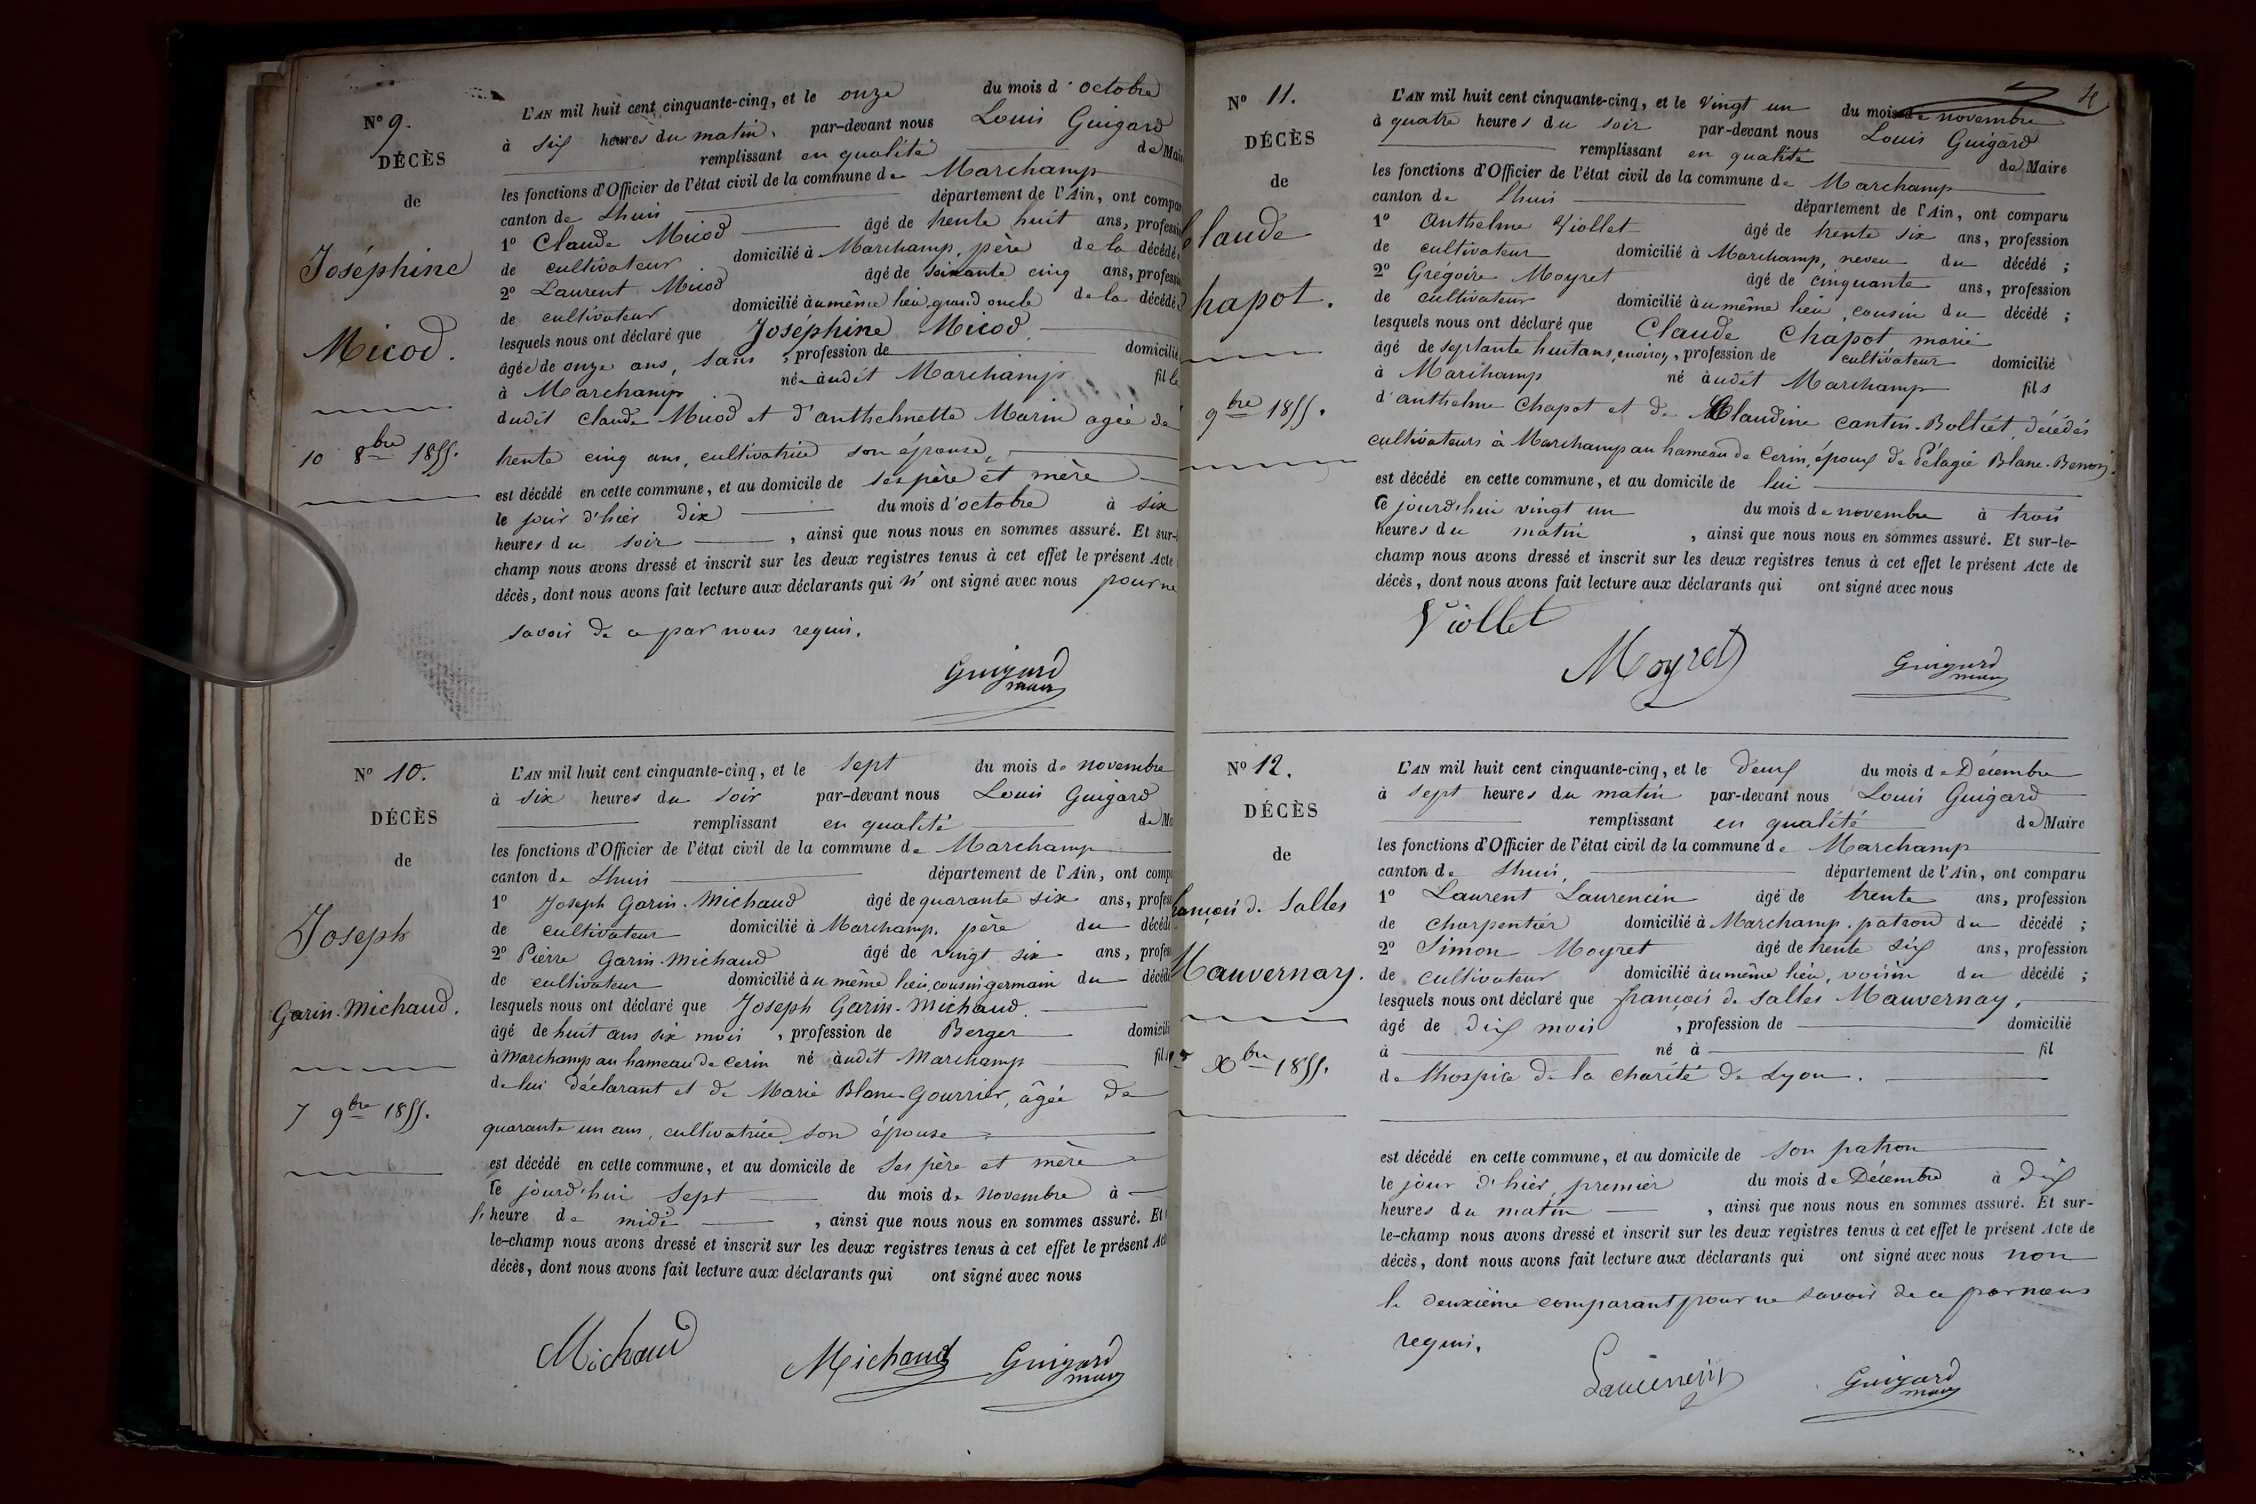 Nº 9.
DÉCÈS
de
Joséphine
Micod.
10 8bre 1855.
L'AN mil huit cent cinquante-cinq, et le onze du mois d'octobre
à six heures du matin, par-devant nous Louis Guigard
remplissant en qualité de Mai
les fonctions d'Officier de l'état civil de la commune de Marchamp
canton de Lhuis département de l'Ain, ont compar
1º Claude Micod âgé de trente huit ans, professi
de cultivateur domicilié à Marchamp, père de la décédé
2º Laurent Micod âgé de soixante cinq ans, professi
de cultivateur domicilié au même lieu, grand oncle de la décédé
lesquels nous ont déclaré que Joséphine Micod.
âgée de onze ans, sans, profession de domicilié
à Marchamp née audit Marchamp fille
dudit Claude Micod et d'anthelmette Marin agée de
trente cinq ans, cultivatrice son épouse,
est décédé en cette commune, et au domicile de ses père et mère
le jour d'hier dix du mois d'octobre à six
heures du soir, ainsi que nous nous en sommes assuré. Et sur-
champ nous avons dressé et inscrit sur les deux registres tenus à cet effet le présent Acte
décès, dont nous avons fait lecture aux déclarants qui n'ont signé avec nous pour ne
savoir de ce par nous requis.
Guigard
maire
Nº 10.
DÉCÈS
de
Joseph
Garin-Michaud.
7 9bre 1855.
L'AN mil huit cent cinquante-cinq, et le sept du mois de novembre
à six heures du soir par-devant nous Louis Guigard
remplissant en qualité de Ma
les fonctions d'Officier de l'état civil de la commune de Marchamp
canton de Lhuis département de l'Ain, ont compa
1º Joseph Garin-Michaud âgé de quarante six ans, profes
de cultivateur domicilié à Marchamp, père du décédé
2º Pierre Garin-Michaud âgé de vingt six ans, profes
de cultivateur domicilié au même lieu, cousin germain du décédé
lesquels nous ont déclaré que Joseph Garin-Michaud.
âgé de huit ans six mois, profession de Berger domicili
à Marchamp au hameau de Cerin né audit Marchamp fils
de lui déclarant et de Marie Blanc-Gourrier, âgée de
quarante un ans, cultivatrice son épouse
est décédé en cette commune, et au domicile de ses père et mère
Ce jourd'hui sept du mois de novembre à
heure de midi, ainsi que nous nous en sommes assuré. Et
le-champ nous avons dressé et inscrit sur les deux registres tenus à cet effet le présent Act
décès, dont nous avons fait lecture aux déclarants qui ont signé avec nous
Michaud Michaud Guigard
maire
4
Nº 11.
DÉCÈS
de
Claude
Chapot.
9bre 1855.
L'AN mil huit cent cinquante-cinq, et le vingt un du mois de novembre
à quatre heures du soir par-devant nous Louis Guigard
remplissant en qualité de Maire
les fonctions d'Officier de l'état civil de la commune de Marchamp
canton de Lhuis département de l'Ain, ont comparu
1º Anthelme Viollet âgé de trente six ans, profession
de cultivateur domicilié à Marchamp, neveu du décédé ;
2º Grégoire Moyret âgé de cinquante ans, profession
de cultivateur domicilié au même lieu, cousin du décédé ;
lesquels nous ont déclaré que Claude Chapot marié
âgé de septante huit ans, environ, profession de cultivateur domicilié
à Marchamp né audit Marchamp fils
d'anthelme Chapot et de Claudine Cantin-Bolliet, décédés
cultivateurs à Marchamp au hameau de Cerin, époux de Pélagie Blanc-Benon.
est décédé en cette commune, et au domicile de lui
Ce jourd'hui vingt un du mois de novembre à trois
heures du matin, ainsi que nous nous en sommes assuré. Et sur-le-
champ nous avons dressé et inscrit sur les deux registres tenus à cet effet le présent Acte de
décès, dont nous avons fait lecture aux déclarants qui ont signé avec nous
Viollet
Moyret Guigard
maire
Nº 12.
DÉCÈS
de
François de Salles
Mauvernay.
Xbre 1855.
L'AN mil huit cent cinquante-cinq, et le deux du mois de Décembre
à sept heures du matin par-devant nous Louis Guigard
remplissant en qualité de Maire
les fonctions d'Officier de l'état civil de la commune de Marchamp
canton de Lhuis, département de l'Ain, ont comparu
1º Laurent Laurencin âgé de trente ans, profession
de charpentier domicilié à Marchamp, patron du décédé ;
2º Simon Moyret âgé de trente six ans, profession
de cultivateur domicilié au même lieu, voisin du décédé ;
lesquels nous ont déclaré que françois de salles Mauvernay,
âgé de dix mois, profession de domicilié
à né à fil
de l'hospice de la charité de Lyon.
est décédé en cette commune, et au domicile de son patron
le jour d'hier, premier du mois de Décembre à dix
heures du matin, ainsi que nous nous en sommes assuré. Et sur-
le-champ nous avons dressé et inscrit sur les deux registres tenus à cet effet le présent Acte de
décès, dont nous avons fait lecture aux déclarants qui ont signé avec nous non
le deuxième comparant pour ne savoir de ce par nous
requis.
Laurencin Guigard
maire